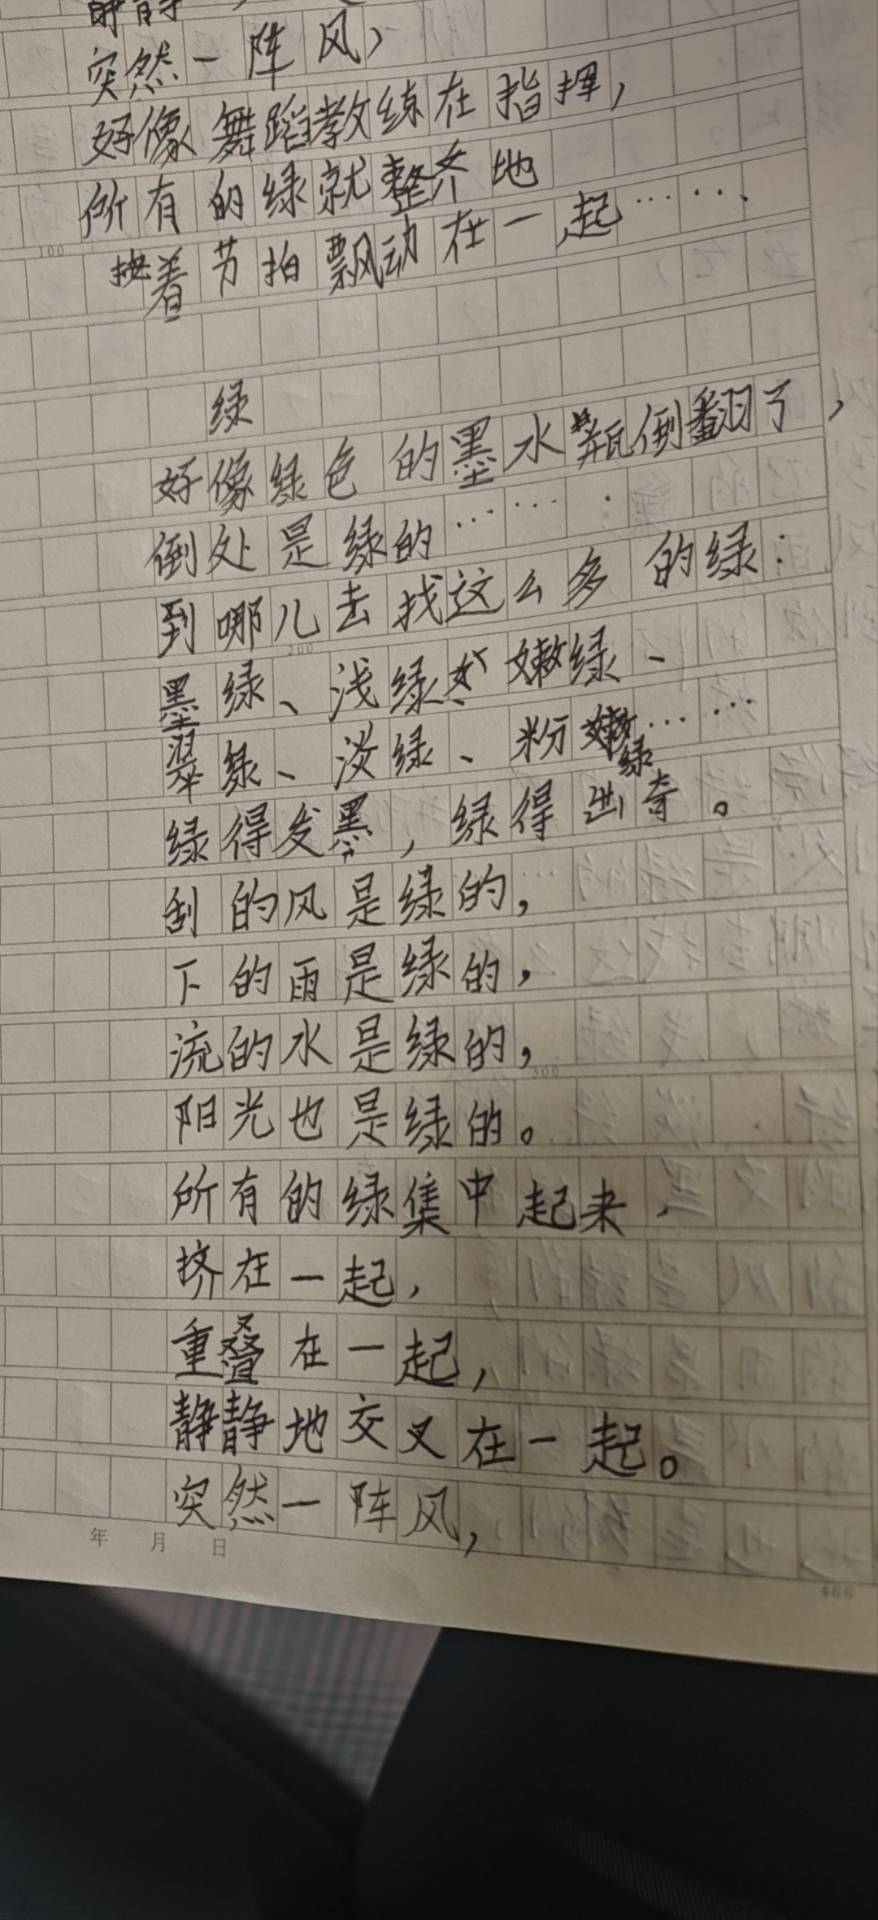 静
突然一阵风，
好像舞蹈教练在指挥，
所有的绿就整齐地
按着节拍飘动在一起……
100
绿
好像绿色的墨水瓶倒翻了，
倒处是绿的……
到哪儿去找这么多的绿：
200
墨绿、浅绿、嫩绿、
翠绿、淡绿、粉嫩绿……
绿得发黑，绿得出奇。
刮的风是绿的，
下的雨是绿的，
流的水是绿的，
300
阳光也是绿的。
所有的绿集中起来，
挤在一起，
重叠在一起，
静静地交叉在一起。
突然一阵风，
年 月 日
400